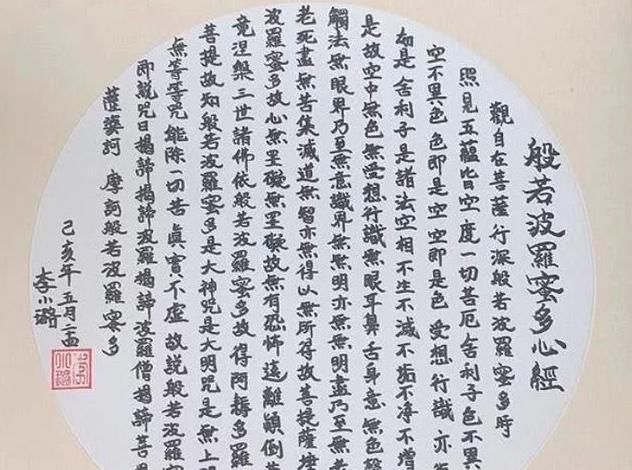 般若波羅蜜多心經
觀自在菩薩行深般若波羅蜜多時
照見五蘊皆空度一切苦厄舍利子色不異
空不異色色即是空空即是色受想行識亦
如是舍利子是諸法空相不生不滅不垢不淨不增
是故空中無色無受想行識無眼耳鼻舌身意無色
觸法無眼界乃至無意識界無無明亦無無明盡乃至無
老死盡無苦集滅道無智亦無得以無所得故菩提薩埵
波羅蜜多故心無罣礙無罣礙故無有恐怖遠離顛倒
竟涅槃三世諸佛依般若波羅蜜多故得阿耨多羅
菩提故知般若波羅蜜多是大神咒是大明咒是無上
無等等咒能除一切苦真實不虛故說般若波羅
即說咒曰揭諦揭諦波羅揭諦波羅僧揭諦菩
薩婆訶 摩訶般若波羅蜜多
己亥年五月
李小璐